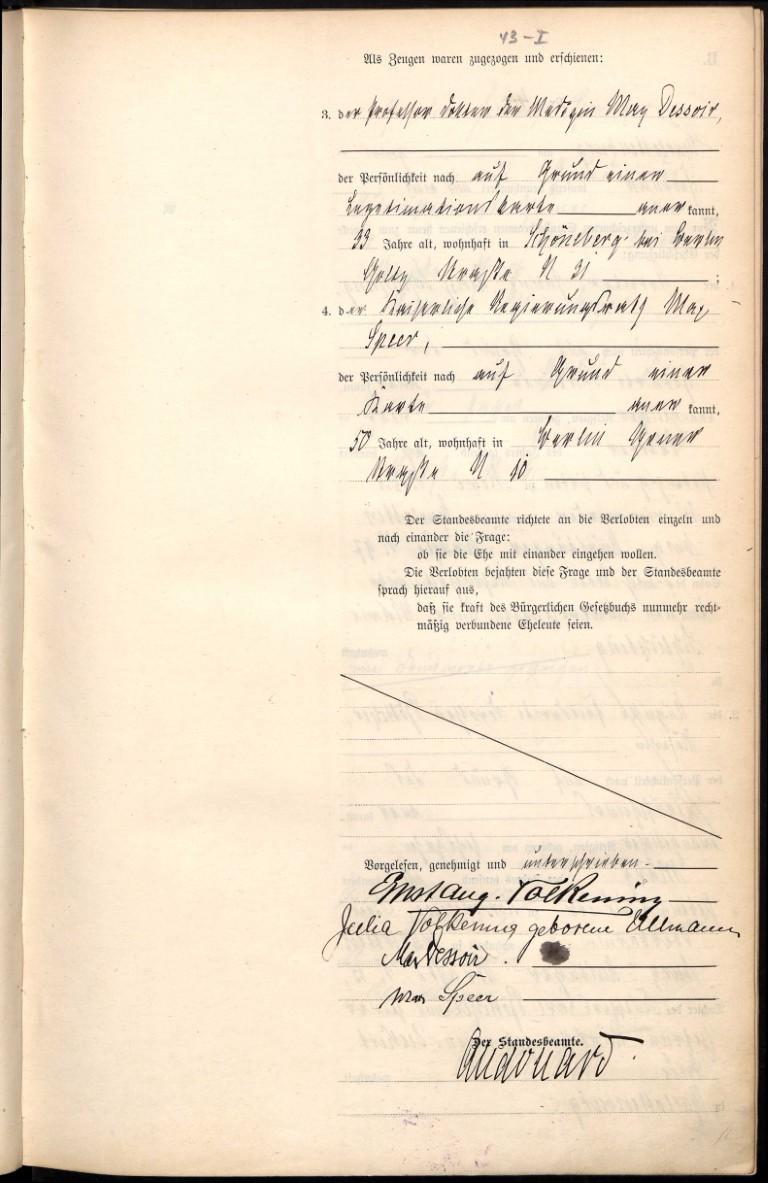 43-I
Als Zeugen waren zugezogen und erschienen:
3. der Professor Doktor der Medizin Max Dessoir,
der Persönlichkeit nach auf Grund einer
Legitimationskarte aner kannt,
33 Jahre alt, wohnhaft in Schöneberg bei Berlin
Goltz Straße N 31 ;
4. der Kaiserliche Regierungsrath Max
Speer,
der Persönlichkeit nach auf Grund einer
Karte aner kannt,
50 Jahre alt, wohnhaft in Berlin
Straße N 10
Der Standesbeamte richtete an die Verlobten einzeln und
nach einander die Frage:
ob sie die Ehe mit einander eingehen wollen.
Die Verlobten bejahten diese Frage und der Standesbeamte
sprach hierauf aus,
daß sie kraft des Bürgerlichen Gesetzbuchs nunmehr recht-
mäßig verbundene Eheleute seien.
Vorgelesen, genehmigt und unterschrieben
Ernst Aug. Volkening
Julia Volkening geborene Ullmann
Max Dessoir.
Max Speer
Der Standesbeamte.